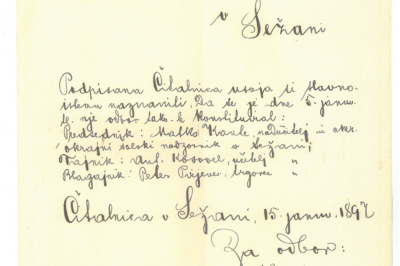 v Sežani
Podpisana Čitalnica usoja si slavno-
istemu naznaniti, da se je dne 5. januv.
t. l. nje odbor tako-le konstituiral:
Predsednik: Matko Kante, nadučitelj in c.kr.
okrajni šolski nadzornik v Sežani;
Tajnik: Ant. Kosovel, učitelj "
Blagajnik: Peter Pirjevec, trgovec "
Čitalnica v Sežani, 15. januv. 1897
Za odbor: